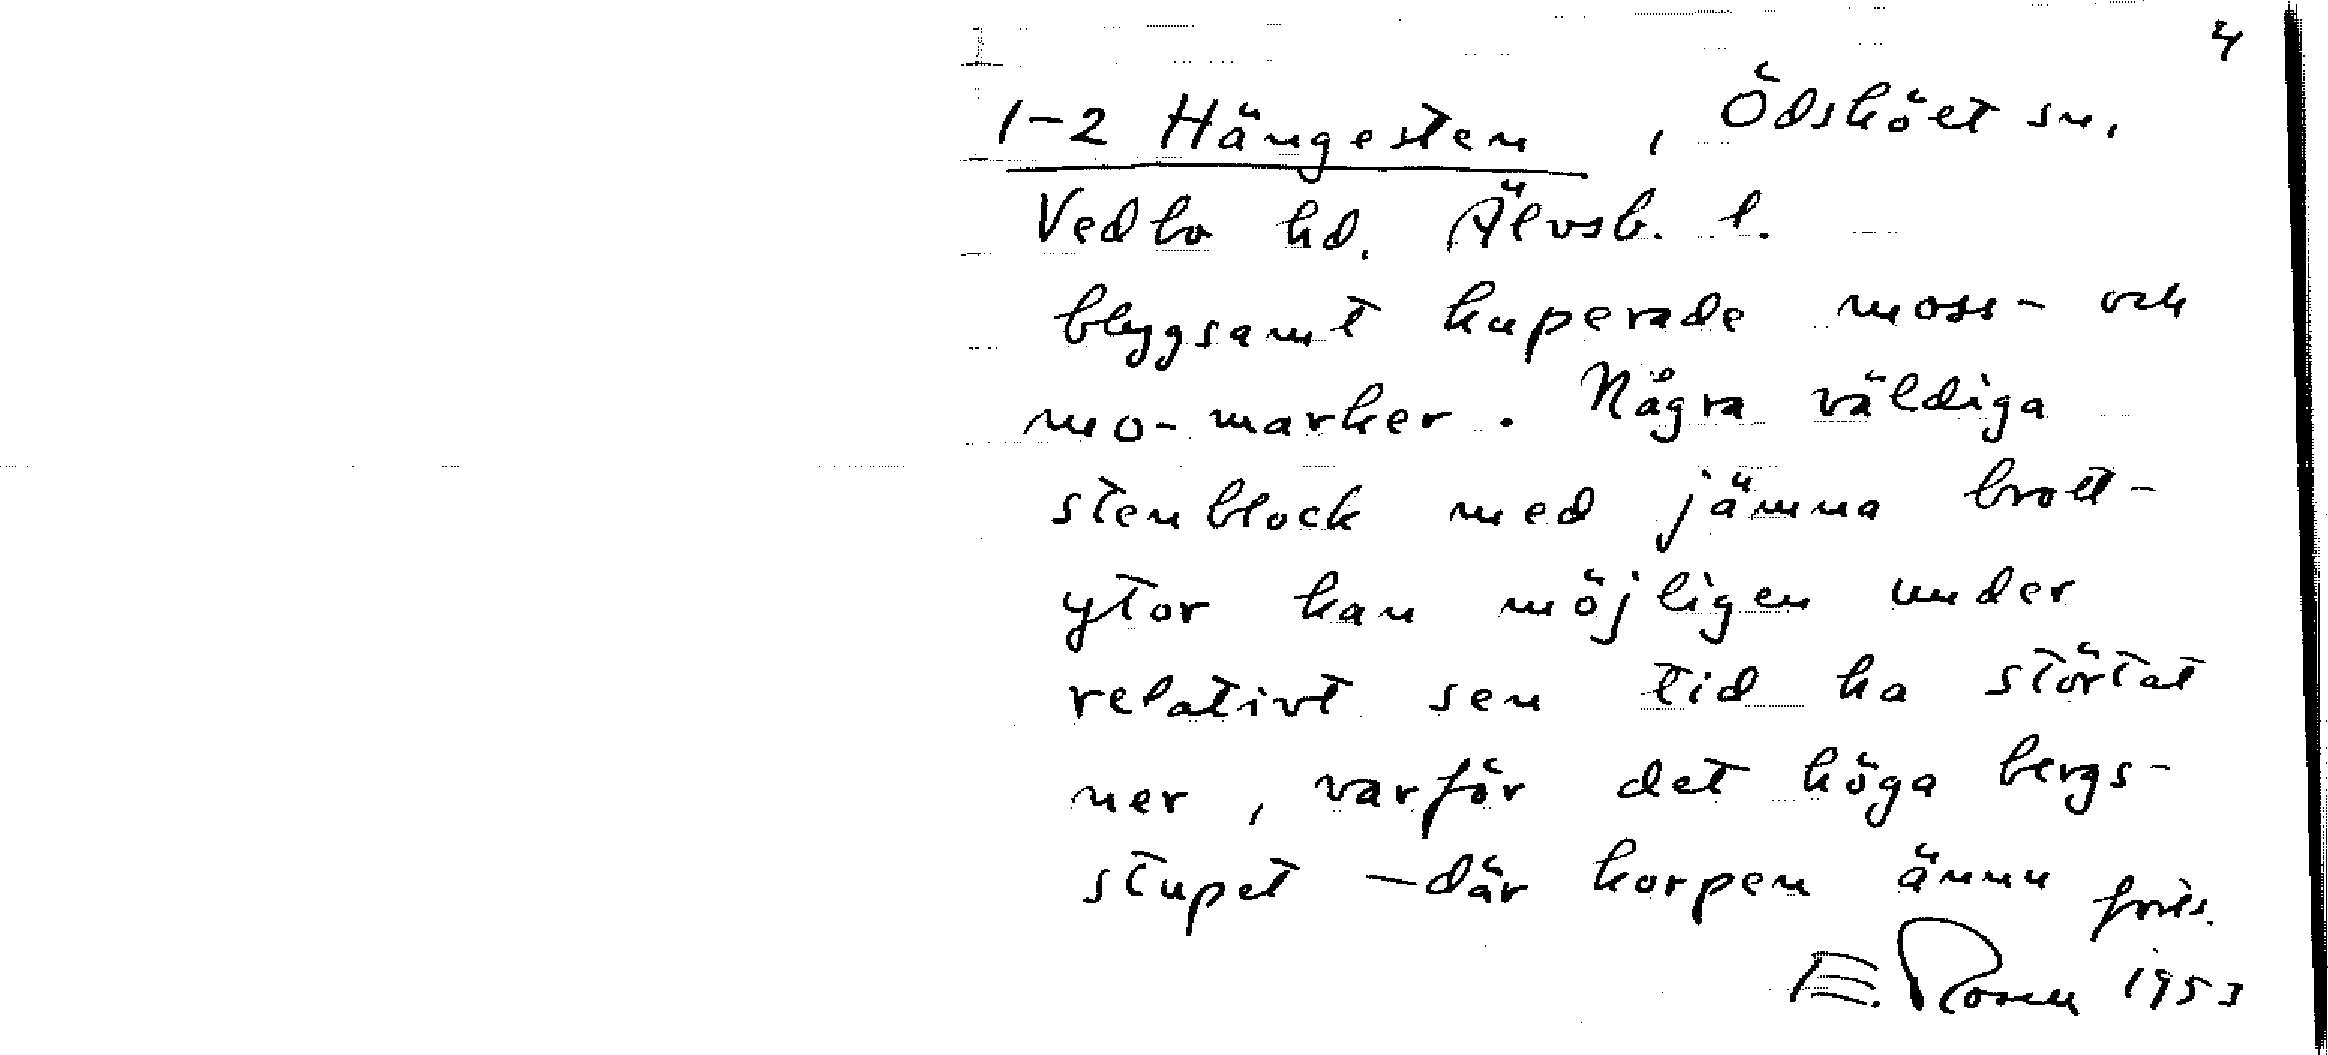 4
1-2 Hängesten, Ödsköet sn.
Vedbo hd. Älvsb. l.
blygsamt kuperade moss- och
mo-marker. Några väldiga
stenblock med jämna brott-
ytor kan möjligen under
relativt sen tid ha störtat
ner, varför det höga bergs-
stupet - där korpen ännu
E. Rosen 1953